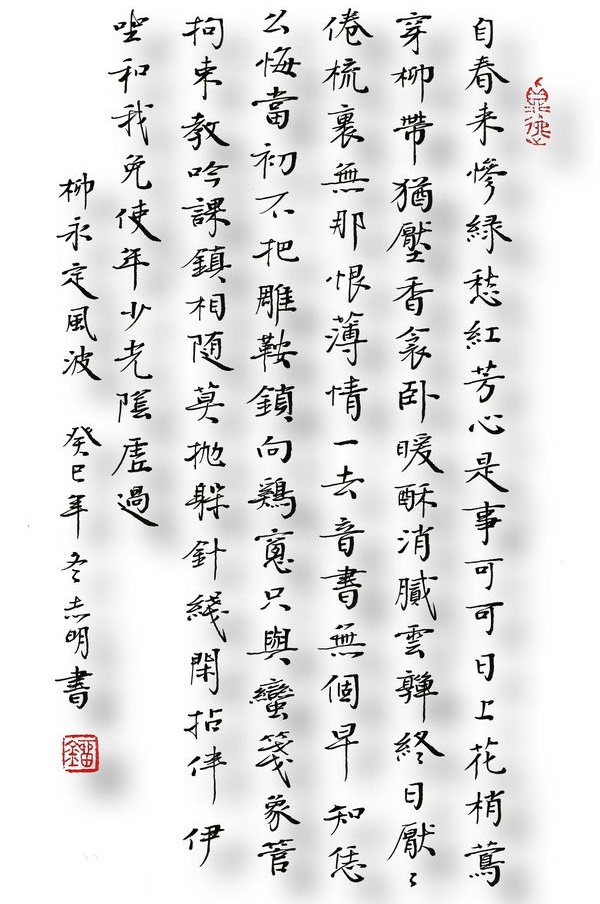 自春来慘緑愁紅芳心是事可可日上花梢鶯
穿柳帶猶壓香衾卧暖酥消膩雲嚲終日厭〻
倦梳裹無那恨薄情一去音書無個早知恁
么悔當初不把雕鞍鎖向鶏窻只與蠻箋象管
拘束教吟課鎮相随莫抛躲針綫閑拈伴伊
坐和我免使年少光陰虚過
柳永定風波 癸巳年冬志明書